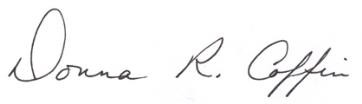 Donna R. Coffin